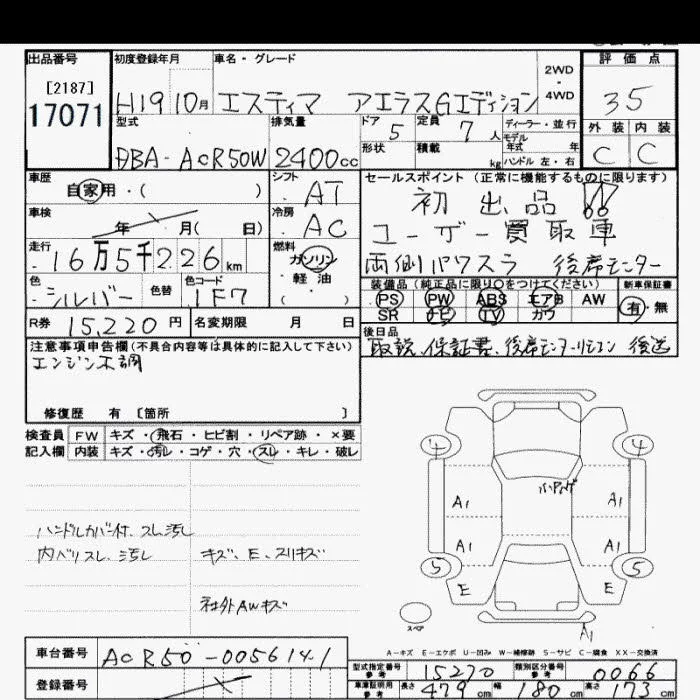 出品番号
[2187]
17071
初度登録年月 車名・グレード 2WD・4WD 評価点
H19 10月 エスティマ アエラスGエディション 35
型式 排気量 ドア 5 定員 7人 ディーラー・並行 外装 内装
DBA-ACR50W 2400cc 形状 積載 kg モデル年式 年 ハンドル 左・右 C C
車歴 自家用・( ) シフト AT
車検 年 月( 日) 冷房 AC
走行 16万5千226km 燃料 ガソリン・軽油 ( )
色 シルバー 色替 色コード 1F7
R券 15,220円 名変期限 月 日
セールスポイント(正常に機能するものに限ります)
初出品!!
ユーザー買取車
両側パワスラ 後席モニター
装備品(純正品に限り○をつけてください) 新車保証書
PS PW ABS エアB AW 有・無
SR ナビ TV カワ
後日品
取説、保証書、後席モニターリモコン 後送
注意事項申告欄(不具合内容等は具体的に記入して下さい)
エンジン不調
修復歴 有 [箇所 ]
検査員 FW キズ・飛石・ヒビ割・リペア跡・×要
記入欄 内装 キズ・汚レ・コゲ・穴・スレ・キレ・破レ
ハンドルカバー付、スレ汚し
内ベリスレ、汚レ キズ、E、スリキズ
社外AWキズ
4 4
A1 A1
A1 A1
5 5
E E
スペア
A1
A-キズ E-エクボ U-凹み W-補修跡 S-サビ C-腐食 XX-交換済
車台番号 ACR50-0056141
登録番号
型式指定番号 参考 15270 類別区分番号 参考 0066
車庫証明用 参考 長さ 479cm 幅 180cm 高さ 173cm